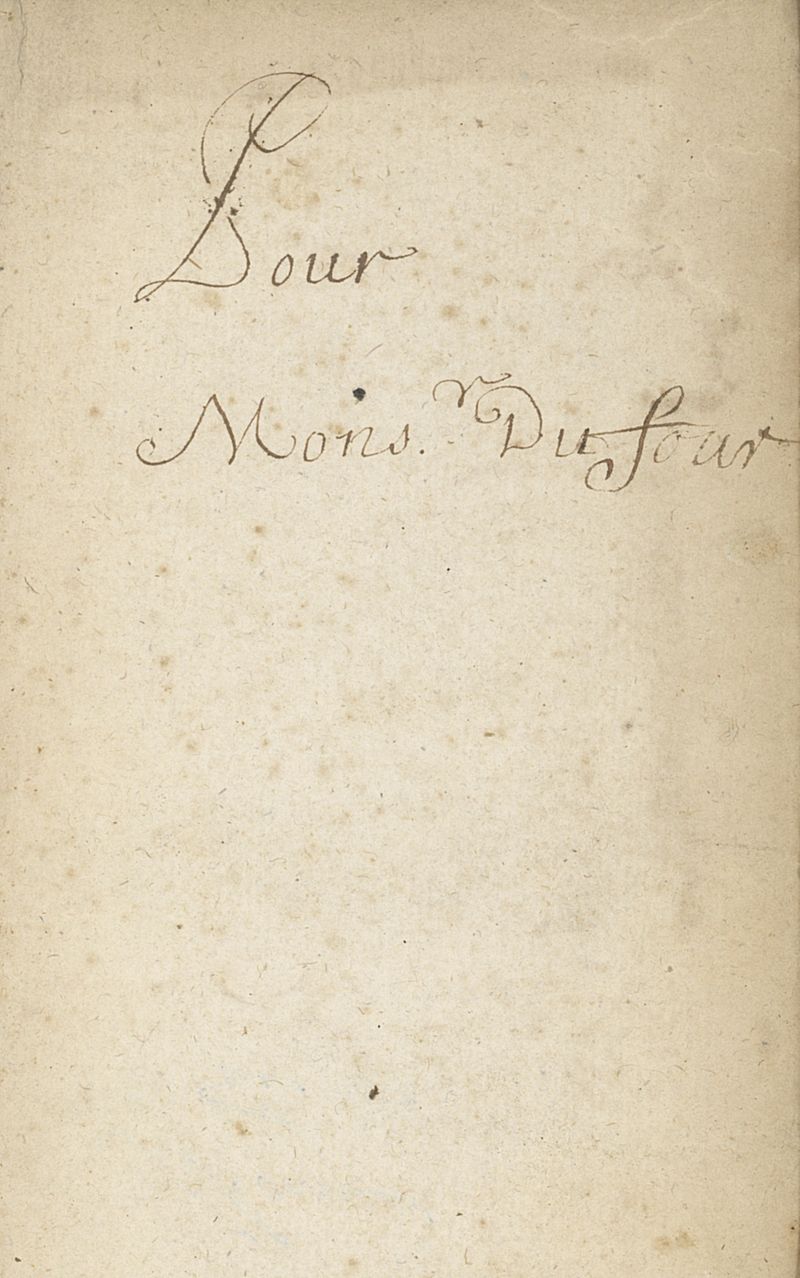 Pour
Mons.r Du four